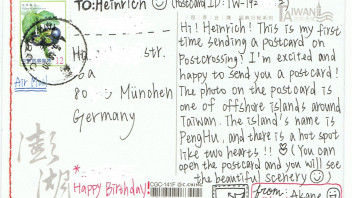 TO: Heinrich ☺
(Postcard ID: TW-192
TAIWAN
12
Air Mail
str.
6a
80 München
Germany
澎湖
Happy Birthday!
Hi! Heinrich! This is my first
time sending a postcard on
Postcrossing? I'm excited and
happy to send you a postcard!
The photo on the postcard is
one of offshore islands around
Taiwan. The island's name is
PengHu, and there is a hot spot
like two hearts!! (You can
open the postcard and you will see
the beautiful scenery ☺)
from: Akane